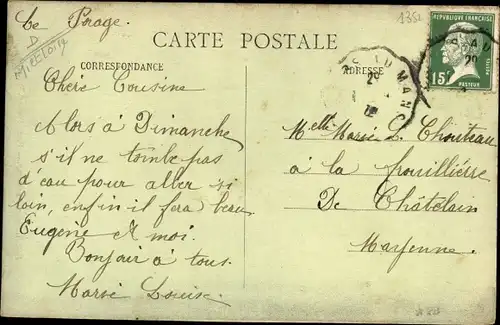 Le Porage
D
M et Loire
1352
CARTE POSTALE
CORRESPONDANCE
ADRESSE
RÉPUBLIQUE FRANÇAISE
POSTES
15c
PASTEUR
MANS
Chère Cousine
Alors à Dimanche
s'il ne tombe pas
d'eau pour aller si
loin, enfin il fera beau
Eugène et moi.
Bonjour à tous
Marie Louise
Melle Marie L. Chouteau
à la fouillière
De Châtelain
Mayenne